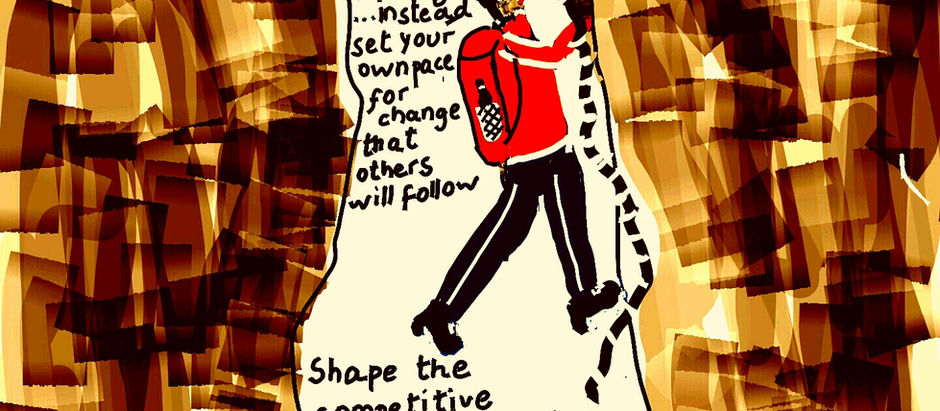 ...instead
set your
own pace
for
change
that
others
will follow
Shape the
competitive